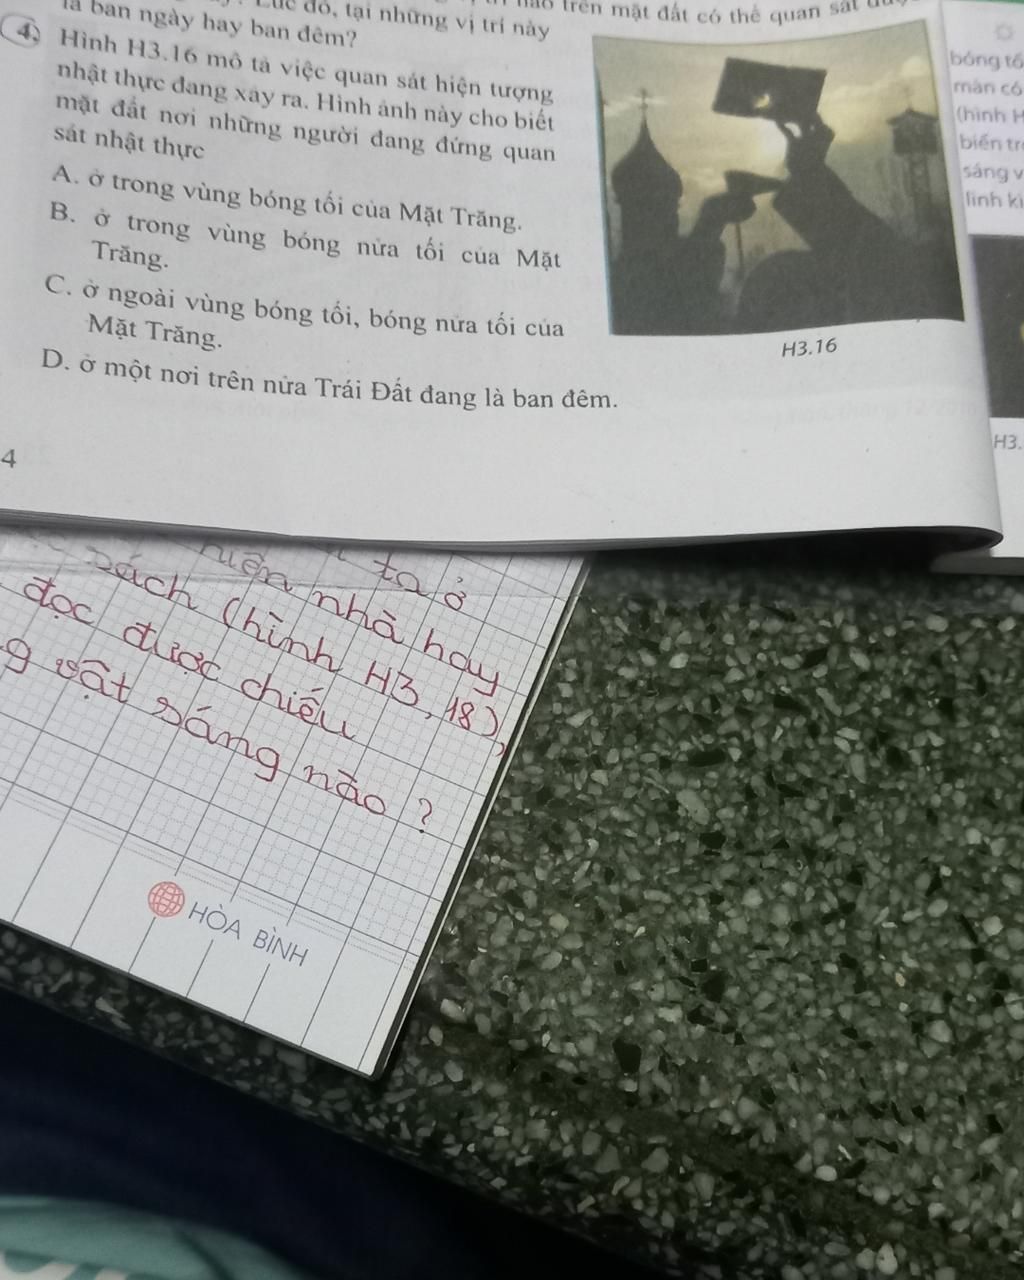 trên mặt đất có thể quan sát
Lúc đó, tại những vị trí này
là ban ngày hay ban đêm?
4. Hình H3.16 mô tả việc quan sát hiện tượng
nhật thực đang xảy ra. Hình ảnh này cho biết
mặt đất nơi những người đang đứng quan
sát nhật thực
A. ở trong vùng bóng tối của Mặt Trăng.
B. ở trong vùng bóng nửa tối của Mặt
Trăng.
C. ở ngoài vùng bóng tối, bóng nửa tối của
Mặt Trăng.
D. ở một nơi trên nửa Trái Đất đang là ban đêm.
H3.16
4
bóng tố
màn có
(hình H
biến tr
sáng v
linh ki
H3.
ta ở
nhà hay
sách (hình H3,18),
đọc được chiếu
vật sáng nào?
HÒA BÌNH